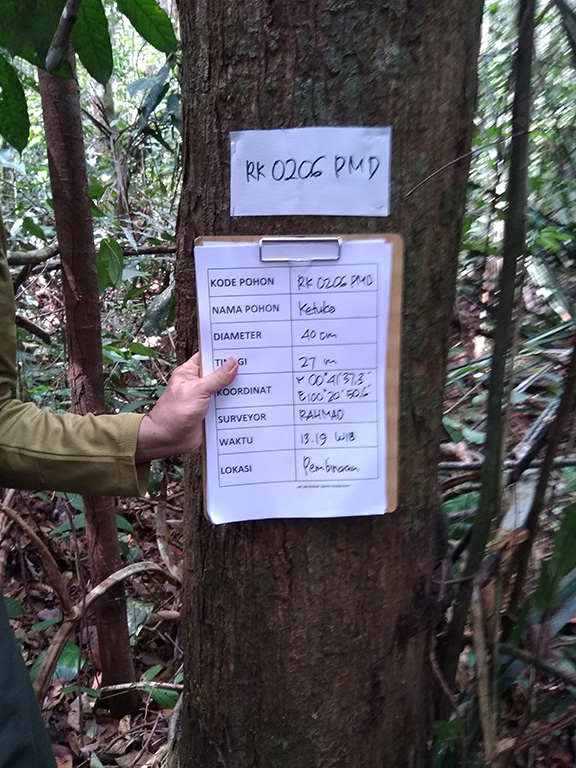 RK 0206 PMD
KODE POHON RK 0206 PMD
NAMA POHON Ketuko
DIAMETER 40 cm
TINGGI 27 m
KOORDINAT 00°41'37.3"
E 100°20'50.6"
SURVEYOR RAHMAD
WAKTU 13.19 WIB
LOKASI Pembinaan